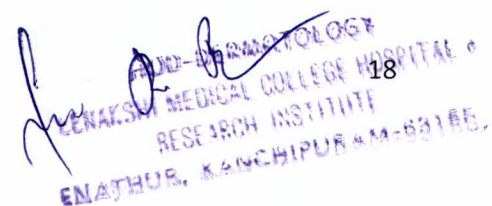 HOD-DERMATOLOGY
MEENAKSHI MEDICAL COLLEGE HOSPITAL &
18
RESEARCH INSTITUTE
ENATHUR, KANCHIPURAM-